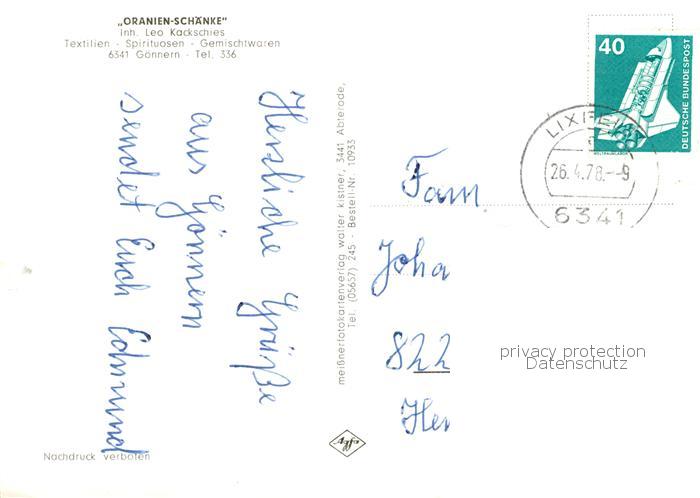 „ORANIEN-SCHÄNKE"
Inh. Leo Kackschies
Textilien - Spirituosen - Gemischtwaren
6341 Gönnern - Tel. 336
Herzliche Grüße
aus Gönnern
sendet Euch Edmund
Nachdruck verboten
meißnerfotokartenverlag walter kistner, 3441 Abterode,
Tel. (05657) 245 - Bestell-Nr. 10933
Agfa
40
DEUTSCHE BUNDESPOST
WELTRAUMLABOR
LIXFELD
26.4.78.--9
6341
Fam
Joha
822
Her
privacy protection
Datenschutz